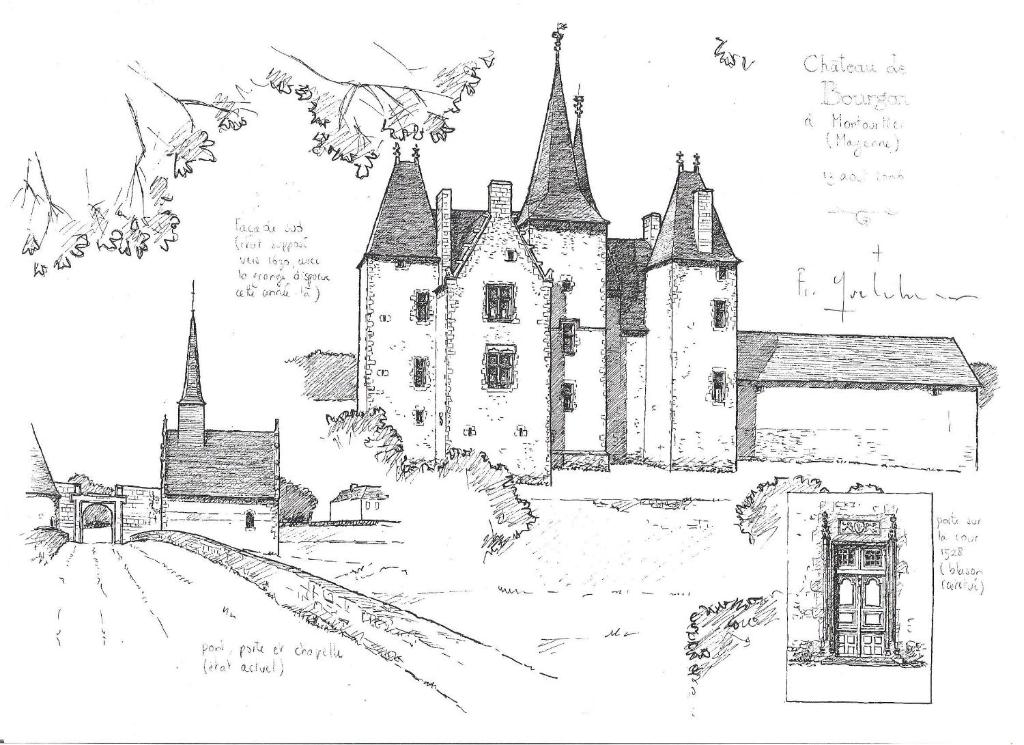 Château de
Bourgon
à Montourtier
(Mayenne)
13 août 2006
G
Façade sud
(état supposé
vers 1630 avec
la grange disparue
cette année-là)
pont, porte et chapelle
(état actuel)
porte sur
la cour
1528
(blason
restitué)